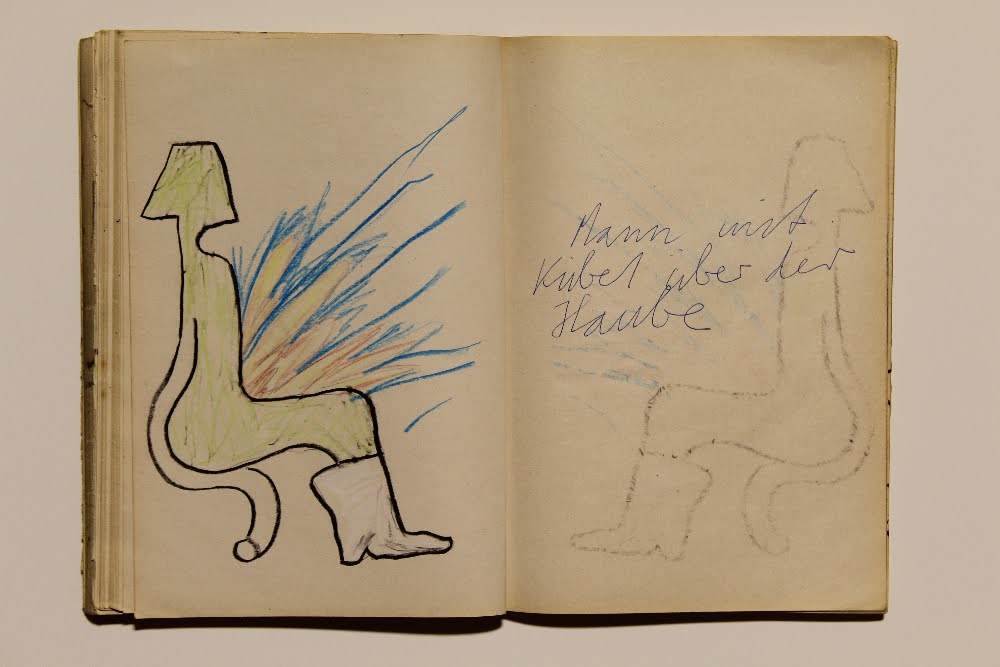 Mann mit
Kübel über der
Haube